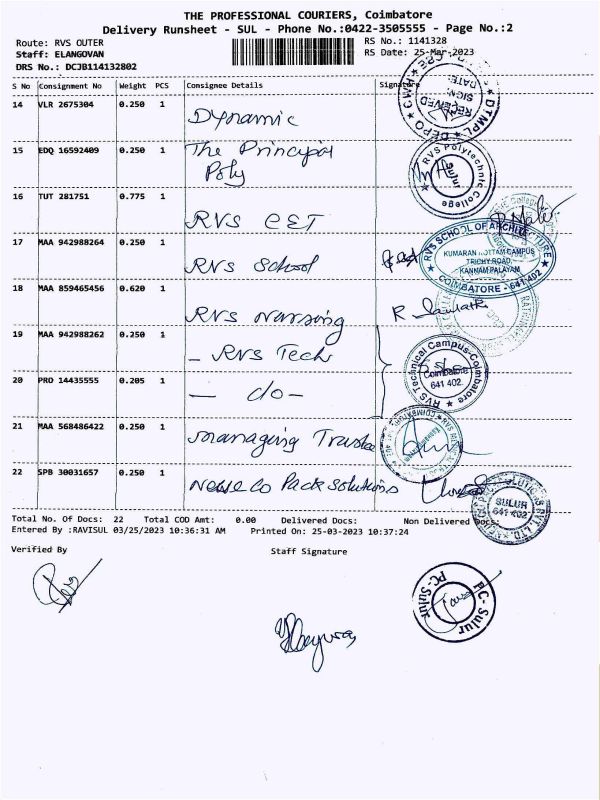 THE PROFESSIONAL COURIERS, Coimbatore
Delivery Runsheet - SUL - Phone No.:0422-3505555 - Page No.:2
Route: RVS OUTER
RS No.: 1141328
Staff: ELANGOVAN
RS Date: 25-Mar-2023
DRS No.: DCJB114132802
S No Consignment No Weight PCS Consignee Details Signature
14 VLR 2675304 0.250 1 Dynamic
15 EDQ 16592409 0.250 1 The Principal
Poly
16 TUT 281751 0.775 1 RVS CET
17 MAA 942988264 0.250 1 RVS School
18 MAA 859465456 0.620 1 RVS Nursing
19 MAA 942988262 0.250 1 - RVS Tech
20 PRO 14435555 0.205 1 - do -
21 MAA 568486422 0.250 1 Managing Trustee
22 SPB 30031657 0.250 1 Pack Solutions
RECEIVED
SIGN.
DATE.
DEPO
DTMPL
RVS Polytechnic College
Sulur
RVS SCHOOL OF ARCHITECTURE
KUMARAN KOTTAM CAMPUS
TRICHY ROAD,
KANNAM PALAYAM
COIMBATORE - 641 402
RVS Technical Campus-Coimbatore
Coimbatore
641 402.
SULUR
641 402
PVT. LTD.
Total No. Of Docs: 22 Total COD Amt: 0.00 Delivered Docs: Non Delivered Docs:
Entered By :RAVISUL 03/25/2023 10:36:31 AM Printed On: 25-03-2023 10:37:24
Verified By Staff Signature
PC- Sulur
PC- Sulur